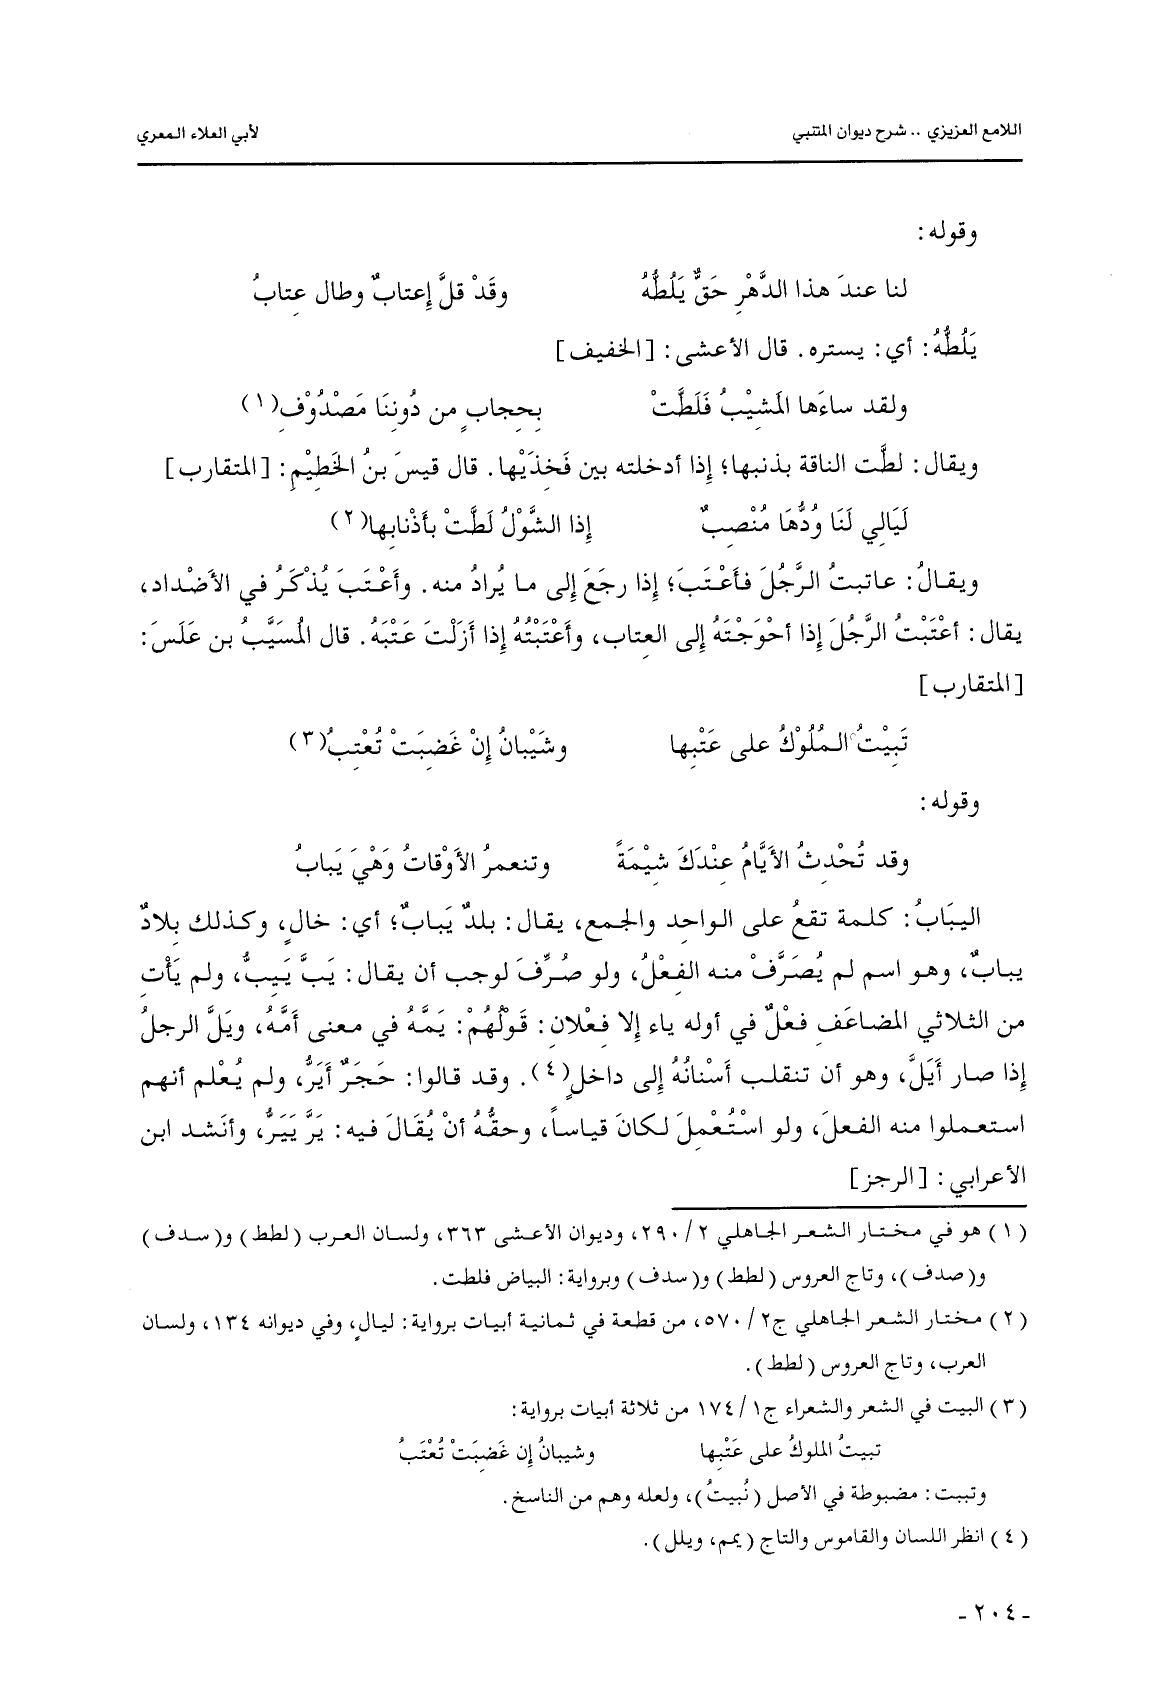 اللامع العزيزي .. شرح ديوان المتنبي لأبي العلاء المعري
وقوله:
لنا عندَ هذا الدَّهْرِ حَقٌّ يَلُطُّهُ وقَدْ قلَّ إِعتابٌ وطال عِتابُ
يَلُطُّهُ: أي: يستره. قال الأعشى: [الخفيف]
ولقد ساءَها المَشِيْبُ فَلَطَّتْ بِحِجابٍ من دُونِنَا مَصْدُوْفِ(١)
ويقال: لطَّت الناقة بذنبها؛ إذا أدخلته بين فَخِذَيْها. قال قيسَ بنُ الخَطِيْمِ: [المتقارب]
لَيَالِي لَنَا وُدُّهَا مُنْصِبٌ إذا الشَّوْلُ لَطَّتْ بأَذْنابِها(٢)
ويقالُ: عاتبتُ الرَّجُلَ فأَعْتَبَ؛ إذا رجَعَ إلى ما يُرادُ منه. وأَعْتَبَ يُذْكَرُ في الأَضْداد،
يقال: أعْتَبْتُ الرَّجُلَ إذا أحْوَجْتَهُ إلى العِتاب، وأَعْتَبْتُهُ إذا أَزَلْتَ عَتْبَهُ. قال المُسَيَّبُ بن عَلَسَ:
[المتقارب]
تَبِيْتُ المُلُوْكُ على عَتْبِها وشَيْبانُ إنْ غَضِبَتْ تُعْتِبُ(٣)
وقوله:
وقد تُحْدِثُ الأَيَّامُ عِنْدَكَ شِيْمَةً وتنعمرُ الأَوْقاتُ وَهْيَ يَبابُ
اليبَابُ: كلمة تقعُ على الواحِد والجمع، يقال: بلدٌ يَبابٌ؛ أي: خالٍ، وكذلك بِلادٌ
يبابٌ، وهو اسم لم يُصَرَّفْ منه الفِعْلُ، ولو صُرِّفَ لوجب أن يقال: يَبَّ يَيِبُّ، ولم يَأْتِ
من الثلاثي المضاعَف فِعْلٌ في أوله ياء إلا فِعْلان: قَوْلُهُمْ: يَمَّهُ في معنى أَمَّهُ، ويَلَّ الرجلُ
إذا صار أَيَلَّ، وهو أن تنقلب أَسْنانُهُ إلى داخلٍ(٤). وقد قالوا: حَجَرٌ أَيَرُّ، ولم يُعْلم أنهم
استعملوا منه الفعلَ، ولو اسْتُعْمِلَ لكانَ قياساً، وحقُّهُ أنْ يُقَالَ فيه: يَرَّ يَيَرُّ، وأنَشد ابن
الأعرابي: [الرجز]
(١) هو في مختار الشعر الجاهلي ٢/ ٢٩٠، وديوان الأعشى ٣٦٣، ولسان العرب (لطط) و(سدف)
و(صدف)، وتاج العروس (لطط) و(سدف) وبرواية: البياض فلطت.
(٢) مختار الشعر الجاهلي ج٢/ ٥٧٠، من قطعة في ثمانية أبيات برواية: ليالٍ، وفي ديوانه ١٣٤، ولسان
العرب، وتاج العروس (لطط).
(٣) البيت في الشعر والشعراء ج١/ ١٧٤ من ثلاثة أبيات برواية:
تبيتُ الملوكُ على عَتْبِها وشيبانُ إن غَضِبَتْ تُعْتَبُ
وتبيت: مضبوطة في الأصل (نُبيتُ)، ولعله وهم من الناسخ.
(٤) انظر اللسان والقاموس والتاج (يمم، ويلل).
- ٢٠٤ -